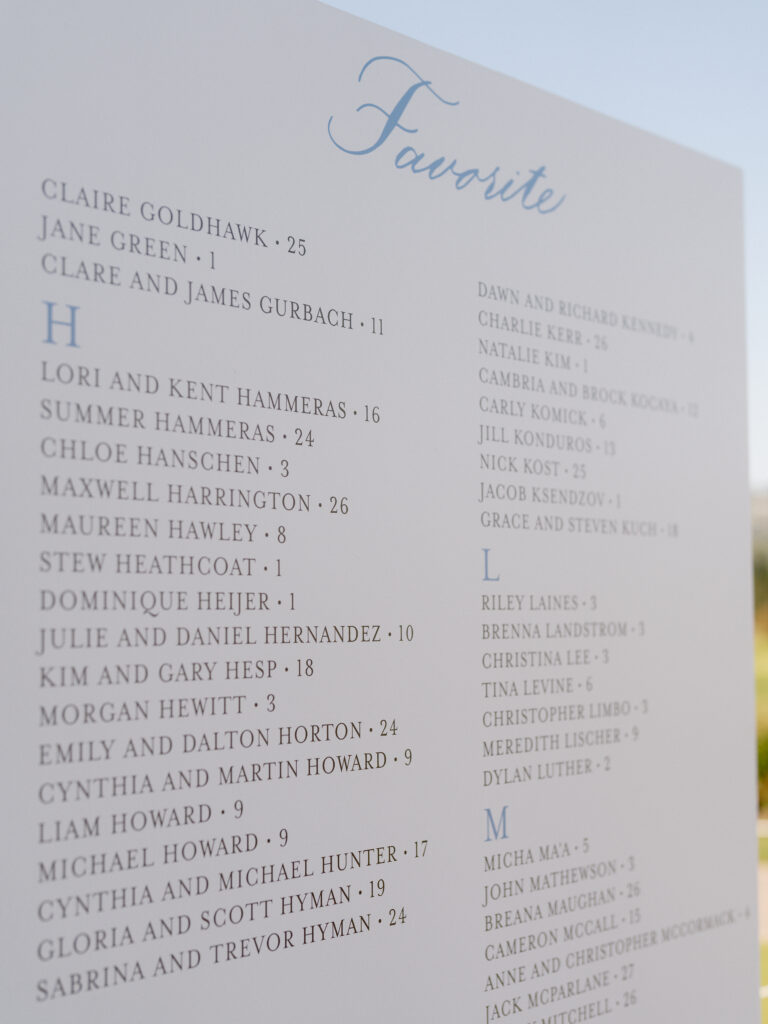 Favorite
CLAIRE GOLDHAWK • 25
JANE GREEN • 1
CLARE AND JAMES GURBACH • 11
H
LORI AND KENT HAMMERAS • 16
SUMMER HAMMERAS • 24
CHLOE HANSCHEN • 3
MAXWELL HARRINGTON • 26
MAUREEN HAWLEY • 8
STEW HEATHCOAT • 1
DOMINIQUE HEIJER • 1
JULIE AND DANIEL HERNANDEZ • 10
KIM AND GARY HESP • 18
MORGAN HEWITT • 3
EMILY AND DALTON HORTON • 24
CYNTHIA AND MARTIN HOWARD • 9
LIAM HOWARD • 9
MICHAEL HOWARD • 9
CYNTHIA AND MICHAEL HUNTER • 17
GLORIA AND SCOTT HYMAN • 19
SABRINA AND TREVOR HYMAN • 24
DAWN AND RICHARD KENNEDY •
CHARLIE KERR • 26
NATALIE KIM • 1
CAMBRIA AND BROCK KOCAYA • 12
CARLY KOMICK • 6
JILL KONDUROS • 13
NICK KOST • 25
JACOB KSENDZOV • 1
GRACE AND STEVEN KUCH • 18
L
RILEY LAINES • 3
BRENNA LANDSTROM • 3
CHRISTINA LEE • 3
TINA LEVINE • 6
CHRISTOPHER LIMBO • 3
MEREDITH LISCHER • 9
DYLAN LUTHER • 2
M
MICHA MA'A • 5
JOHN MATHEWSON • 3
BREANA MAUGHAN • 26
CAMERON MCCALL • 15
ANNE AND CHRISTOPHER MCCORMACK •
JACK MCPARLANE • 27
MITCHELL • 26